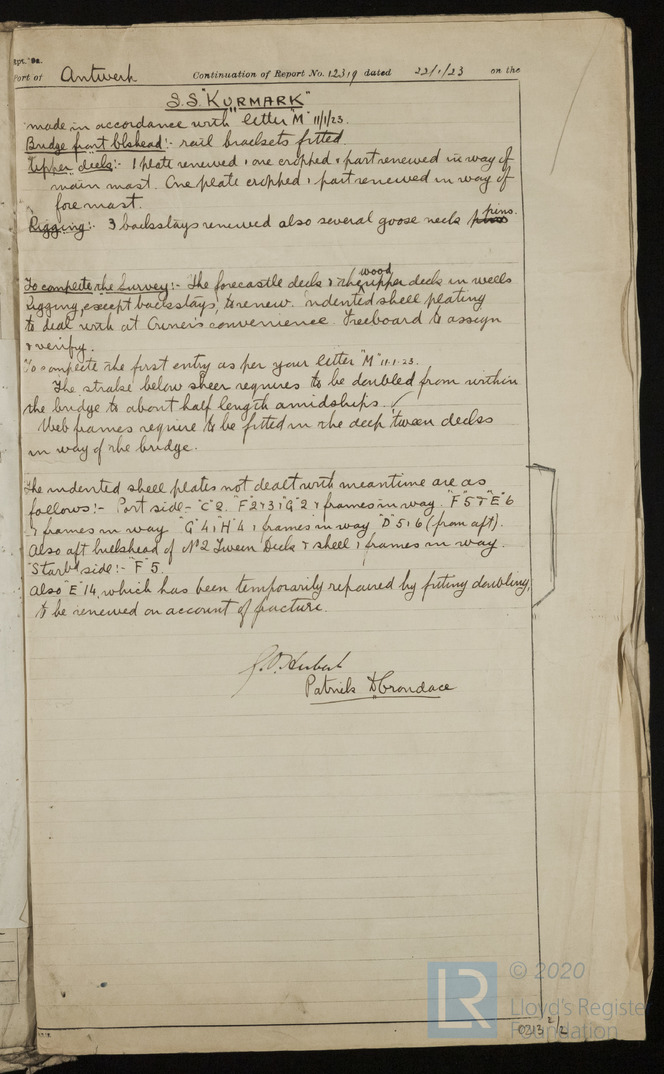 Rpt. 9a.
Port of Antwerp Continuation of Report No. 12319 dated 22/1/23 on the
S.S. "KURMARK"
made in accordance with letter "M" 11/1/23.
Bridge front blkhead:- rail brackets fitted.
Upper deck:- 1 plate renewed, one cropped & part renewed in way of
main mast. One plate cropped & part renewed in way of
fore mast.
Rigging:- 3 backstays renewed also several goose neck pins.
To complete the Survey:- The forecastle deck & the wood upper deck in wells
Rigging, except backstays, to renew. Indented shell plating
to deal with at Owner's convenience. Freeboard to assign
& verify.
To complete the first entry as per your letter "M" 11.1.23.
The strake below sheer requires to be doubled from within
the bridge to about half length amidships. ✓
Web frames require to be fitted in the deep 'tween decks
in way of the bridge.
The indented shell plates not dealt with meantime are as
follows:- Port side- "C" 2. "F" 2 & 3, "G" 2 & frames in way. "F" 5 & "E" 6
& frames in way "G" 4, "H" 4 & frames in way "D" 5 & 6 (from aft).
Also aft bulkhead of No 2 Tween Deck & shell & frames in way.
Starbd side:- "F" 5.
Also "E" 14, which has been temporarily repaired by fitting doubling,
to be renewed on account of fracture.
Patrick D. Crondace
© 2020
LR
Lloyd's Register
Foundation
0213 2/2